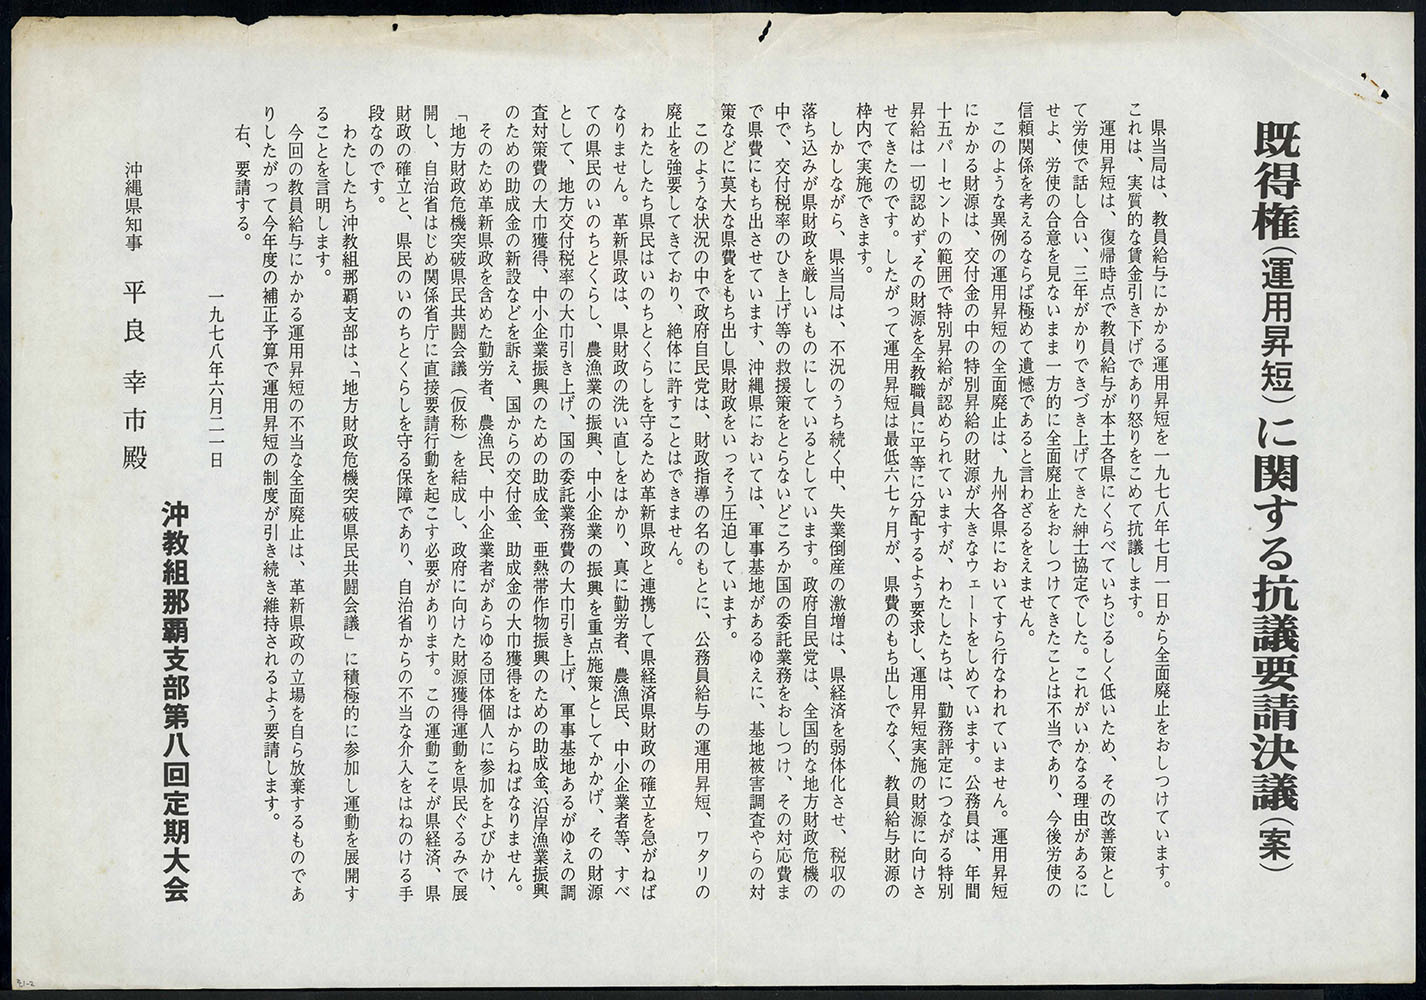 既得権（運用昇短）に関する抗議要請決議（案）
県当局は、教員給与にかかる運用昇短を一九七八年七月一日から全面廃止をおしつけています。
これは、実質的な賃金引き下げであり怒りをこめて抗議します。
運用昇短は、復帰時点で教員給与が本土各県にくらべていちじるしく低いため、その改善策とし
て労使で話し合い、三年がかりできづき上げてきた紳士協定でした。これがいかなる理由があるに
せよ、労使の合意を見ないまま一方的に全面廃止をおしつけてきたことは不当であり、今後労使の
信頼関係を考えるならば極めて遺憾であると言わざるをえません。
このような異例の運用昇短の全面廃止は、九州各県においてすら行なわれていません。運用昇短
にかかる財源は、交付金の中の特別昇給の財源が大きなウェートをしめています。公務員は、年間
十五パーセントの範囲で特別昇給が認められていますが、わたしたちは、勤務評定につながる特別
昇給は一切認めず、その財源を全教職員に平等に分配するよう要求し、運用昇短実施の財源に向けさ
せてきたのです。したがって運用昇短は最低六七ヶ月が、県費のもち出しでなく、教員給与財源の
枠内で実施できます。
しかしながら、県当局は、不況のうち続く中、失業倒産の激増は、県経済を弱体化させ、税収の
落ち込みが県財政を厳しいものにしているとしています。政府自民党は、全国的な地方財政危機の
中で、交付税率のひき上げ等の救援策をとらないどころか国の委託業務をおしつけ、その対応費ま
で県費にもち出させています、沖縄県においては、軍事基地があるゆえに、基地被害調査やらの対
策などに莫大な県費をもち出し県財政をいっそう圧迫しています。
このような状況の中で政府自民党は、財政指導の名のもとに、公務員給与の運用昇短、ワタリの
廃止を強要してきており、絶体に許すことはできません。
わたしたち県民はいのちとくらしを守るため革新県政と連携して県経済県財政の確立を急がねば
なりません。革新県政は、県財政の洗い直しをはかり、真に勤労者、農漁民、中小企業者等、すべ
ての県民のいのちとくらし、農漁業の振興、中小企業の振興を重点施策としてかかげ、その財源
として、地方交付税率の大巾引き上げ、国の委託業務費の大巾引き上げ、軍事基地あるがゆえの調
査対策費の大巾獲得、中小企業振興のための助成金、亜熱帯作物振興のための助成金、沿岸漁業振興
のための助成金の新設などを訴え、国からの交付金、助成金の大巾獲得をはからねばなりません。
そのため革新県政を含めた勤労者、農漁民、中小企業者があらゆる団体個人に参加をよびかけ、
「地方財政危機突破県民共闘会議（仮称）を結成し、政府に向けた財源獲得運動を県民ぐるみで展
開し、自治省はじめ関係省庁に直接要請行動を起こす必要があります。この運動こそが県経済、県
財政の確立と、県民のいのちとくらしを守る保障であり、自治省からの不当な介入をはねのける手
段なのです。
わたしたち沖教組那覇支部は、「地方財政危機突破県民共闘会議」に積極的に参加し運動を展開す
ることを言明します。
今回の教員給与にかかる運用昇短の不当な全面廃止は、革新県政の立場を自ら放棄するものであ
りしたがって今年度の補正予算で運用昇短の制度が引き続き維持されるよう要請します。
右、要請する。
一九七八年六月二一日
沖教組那覇支部第八回定期大会
沖縄県知事 平良幸市殿